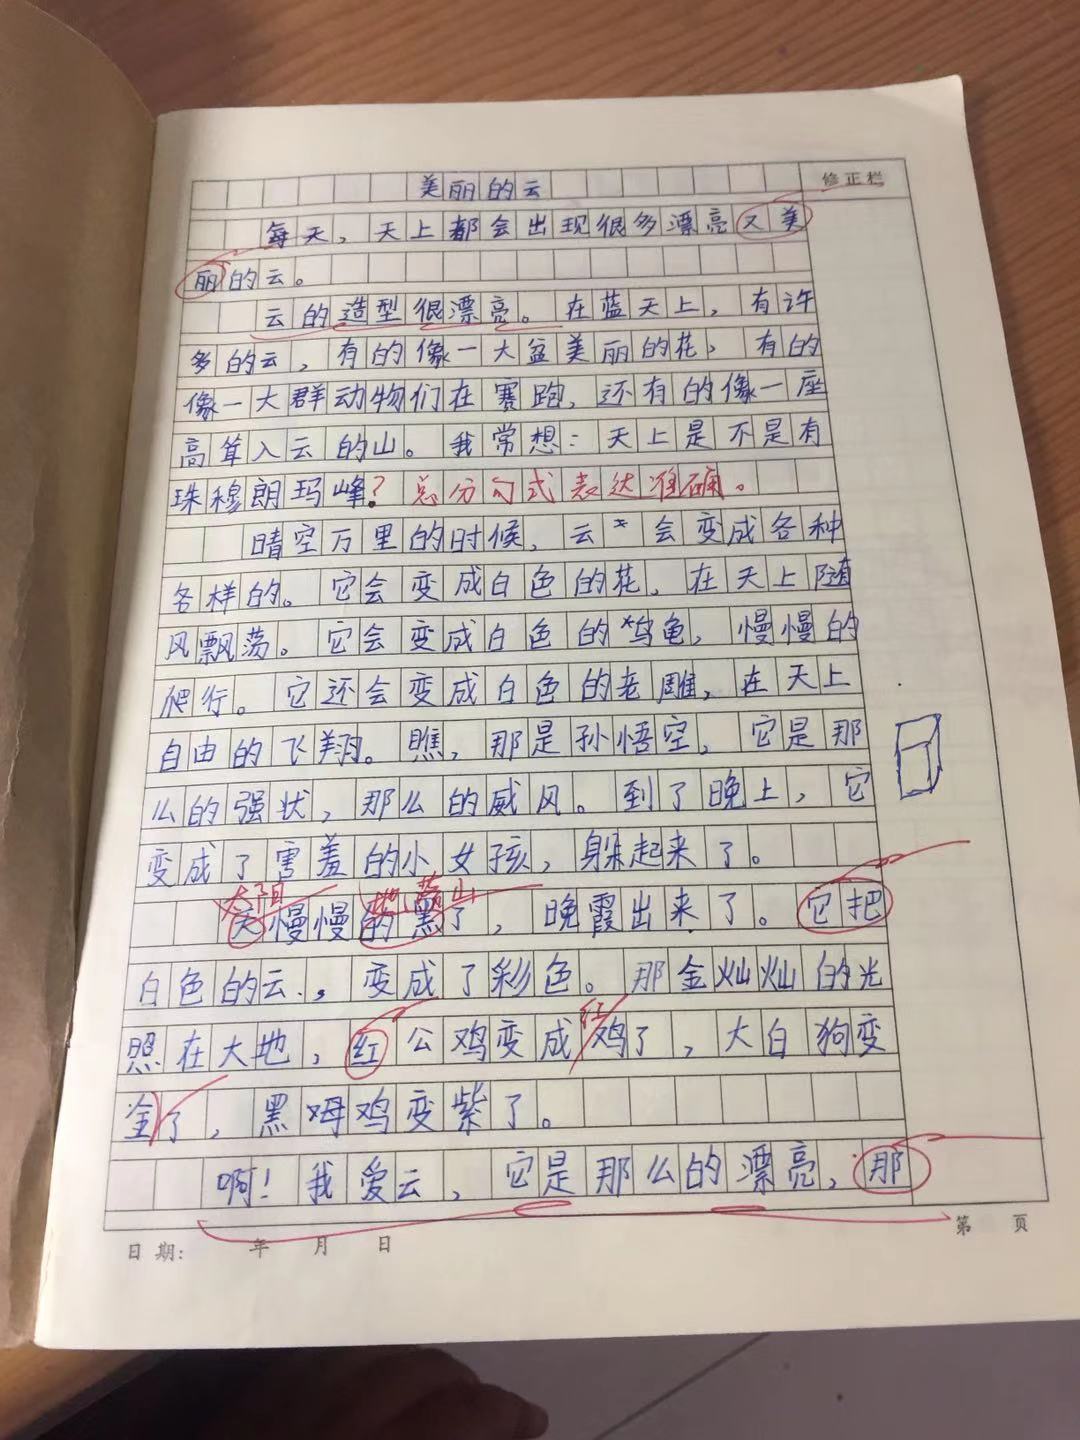 美丽的云
修正栏
每天，天上都会出现很多漂亮又美
丽的云。
云的造型很漂亮。在蓝天上，有许
多的云，有的像一大盆美丽的花，有的
像一大群动物们在赛跑，还有的像一座
高耸入云的山。我常想：天上是不是有
珠穆朗玛峰？总分句式表达准确。
晴空万里的时候，云会变成各种
各样的。它会变成白色的花，在天上随
风飘荡。它会变成白色的乌龟，慢慢的
爬行。它还会变成白色的老雕，在天上
自由的飞翔。瞧，那是孙悟空，它是那
么的强状，那么的威风。到了晚上，它
变成了害羞的小女孩，躲起来了。
太阳 落山
天慢慢的黑了，晚霞出来了。它把
白色的云，变成了彩色。那金灿灿的光
红
照在大地，红公鸡变成鸡了，大白狗变
金了，黑母鸡变紫了。
啊！我爱云，它是那么的漂亮，那
日期： 年 月 日
第 页